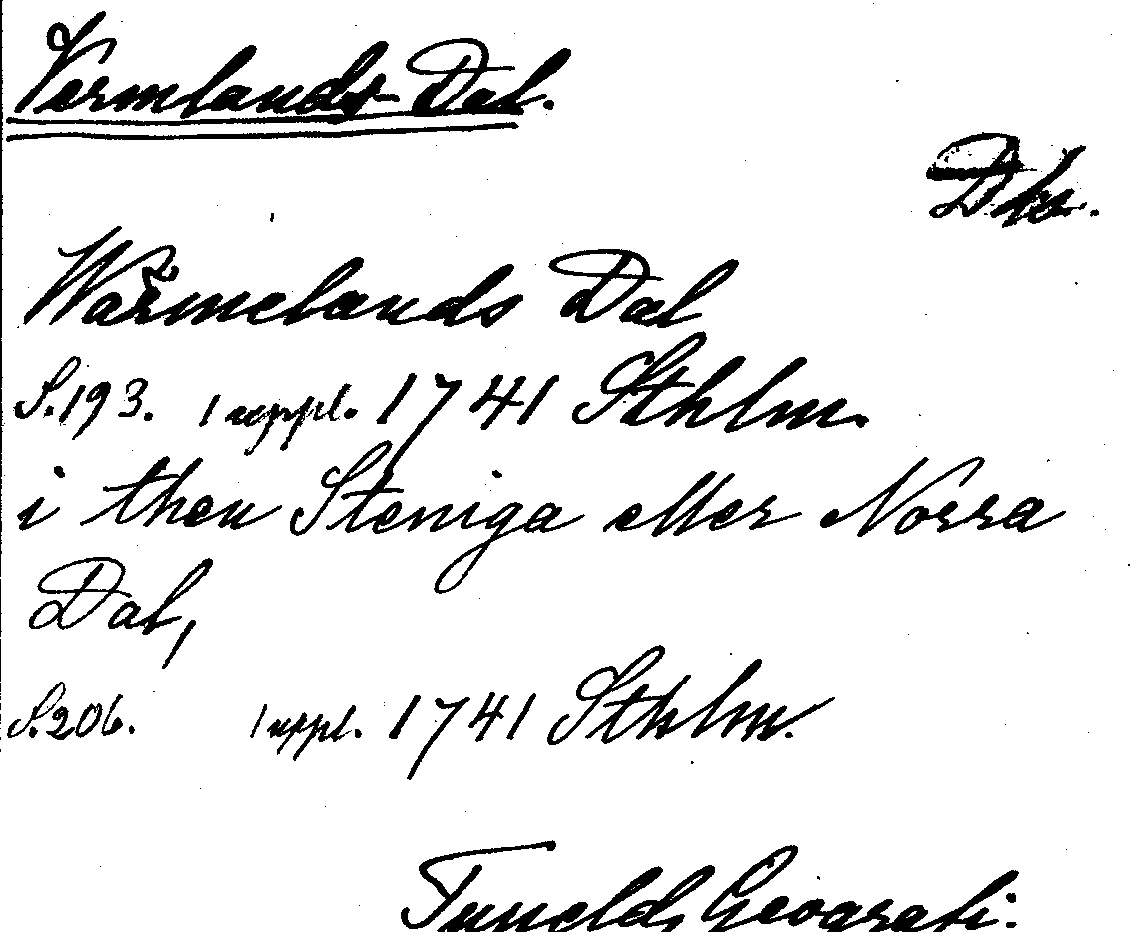 Vermlands-Dal.
Dkr.
Wärmelands Dal
S.193. 1 uppl. 1741 Sthlm.
i then Steniga eller Norra
Dal,
S.206. 1 uppl. 1741 Sthlm.
Tunelds Geografi.